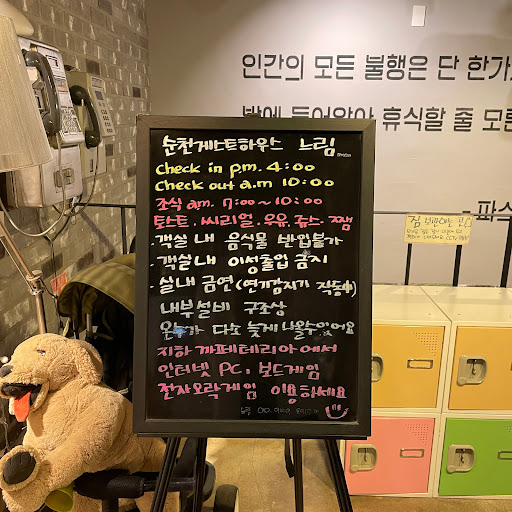 인간의 모든 불행은 단 한가
방에 들어앉아 휴식할 줄 모른
- 파스
순천게스트하우스 느림
Check in pm. 4:00
Check out a.m 10:00
조식 am. 7:00~10:00
토스트. 씨리얼. 우유. 쥬스. 쨈
- 객실 내 음식물 반입불가
- 객실 내 이성출입 금지
- 실내 금연 (연기감지기 작동中)
내부설비 구조상
온수가 다소 늦게 나올수있어요
지하 까페테리아에서
인터넷 PC, 보드게임
전자오락게임 이용하세요